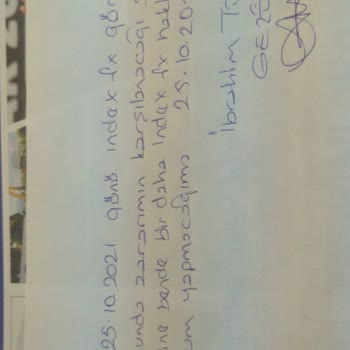 25.10.2021 günü index fx gün
unda zararımın karşılanacağı
ne bende bir daha index fx hakk
um yapmacağıma 25.10.20
İbrahim T
GEZ